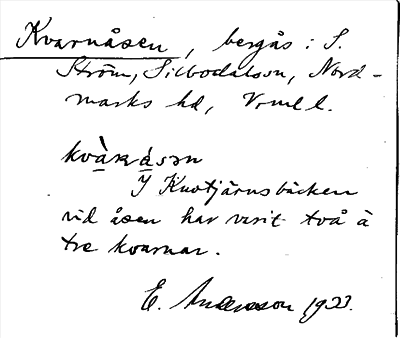 Kvarnåsen, bergås i S.
Ström, Silbodalssn, Nord-
marks hd, Vrml l.
kvà̱ʀá̱sən
I Knotjärnsbäcken
vid åsen har varit två à
tre kvarnar.
E. Andersson 1933.